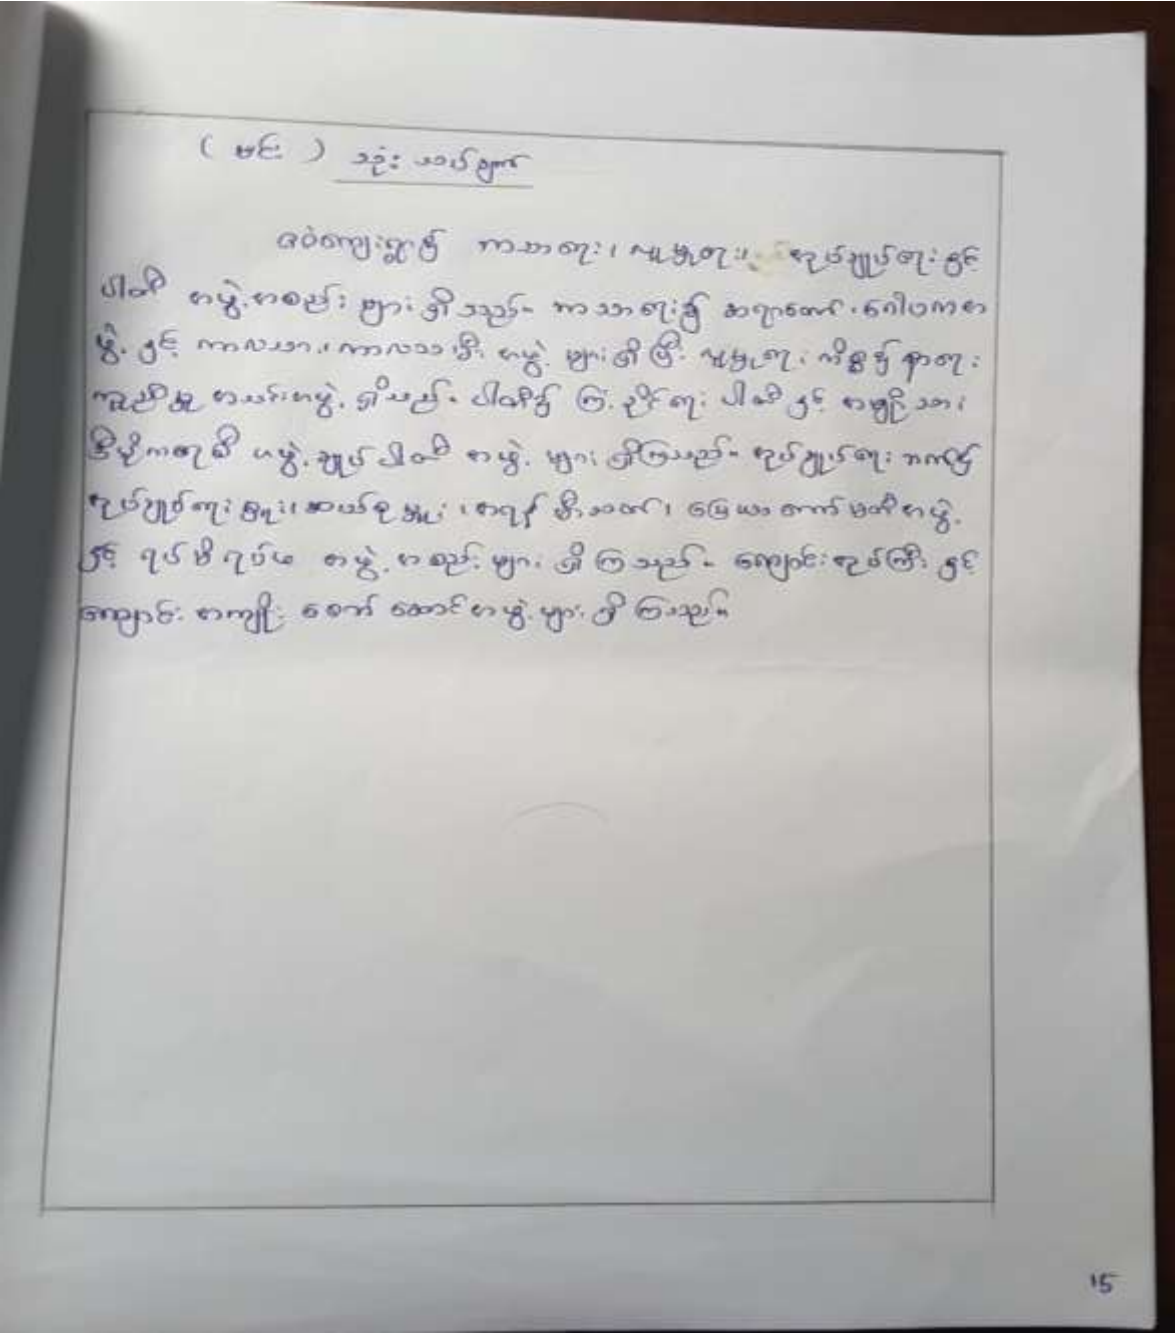 ( မင်း ) သုံးသပ်ချက်
ဇဝံကျေးရွာ၌ ဘာသာရေး၊ လူမှုရေး၊ အုပ်ချုပ်ရေးနှင့်
ပါတီ အဖွဲ့အစည်းများ ရှိသည်။ ဘာသာရေး၌ ဆရာတော်၊ ဂေါပကအ
ဖွဲ့နှင့် ကာလသား၊ ကာလသမီး အဖွဲ့များရှိပြီး လူမှုရေးကိစ္စ၌ နာရေး
ကူညီမှု အသင်းအဖွဲ့ ရှိသည်။ ပါတီ၌ ကြံ့ခိုင်ရေး ပါတီနှင့် အမျိုးသား
ဒီမိုကရေစီ အဖွဲ့ချုပ်ပါတီ အဖွဲ့များ ရှိကြသည်။ အုပ်ချုပ်ရေးဘက်၌
အုပ်ချုပ်ရေးမှူး၊ ဆယ်စုမှူး၊ အရန်မီးသတ်၊ မြေယာကော်မတီအဖွဲ့
နှင့် ရပ်မိရပ်ဖ အဖွဲ့အစည်းများ ရှိကြသည်။ ကျောင်းအုပ်ကြီးနှင့်
ကျောင်းအကျိုးဆောက် ဆောင်အဖွဲ့များ ရှိကြသည်။
15